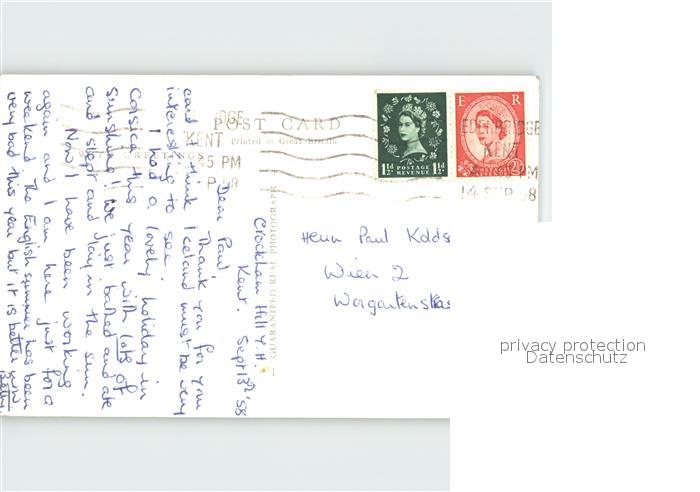 Crockham Hill Y.H.
Kent. Sept 13th '58
Dear Paul,
Thank you for your
card. I think Iceland must be very
interesting to see.
I had a lovely holiday in
Corsica this year with lots of
sunshine! We just bathed and ate
and slept and lay in the sun.
Now I have been working
again and I am here just for a
weekend. The English summer has been
very bad this year but it is better now
Betty.
POST CARD
Printed in Great Britain
GREETINGS
GUARANTEED REAL PHOTOGRAPH
1½d POSTAGE REVENUE 1½d
E R
EDENBRIDGE
KENT
PM
14 SEP
DGE
KENT
45 PM
Herrn Paul
Wien 2
privacy protection
Datenschutz